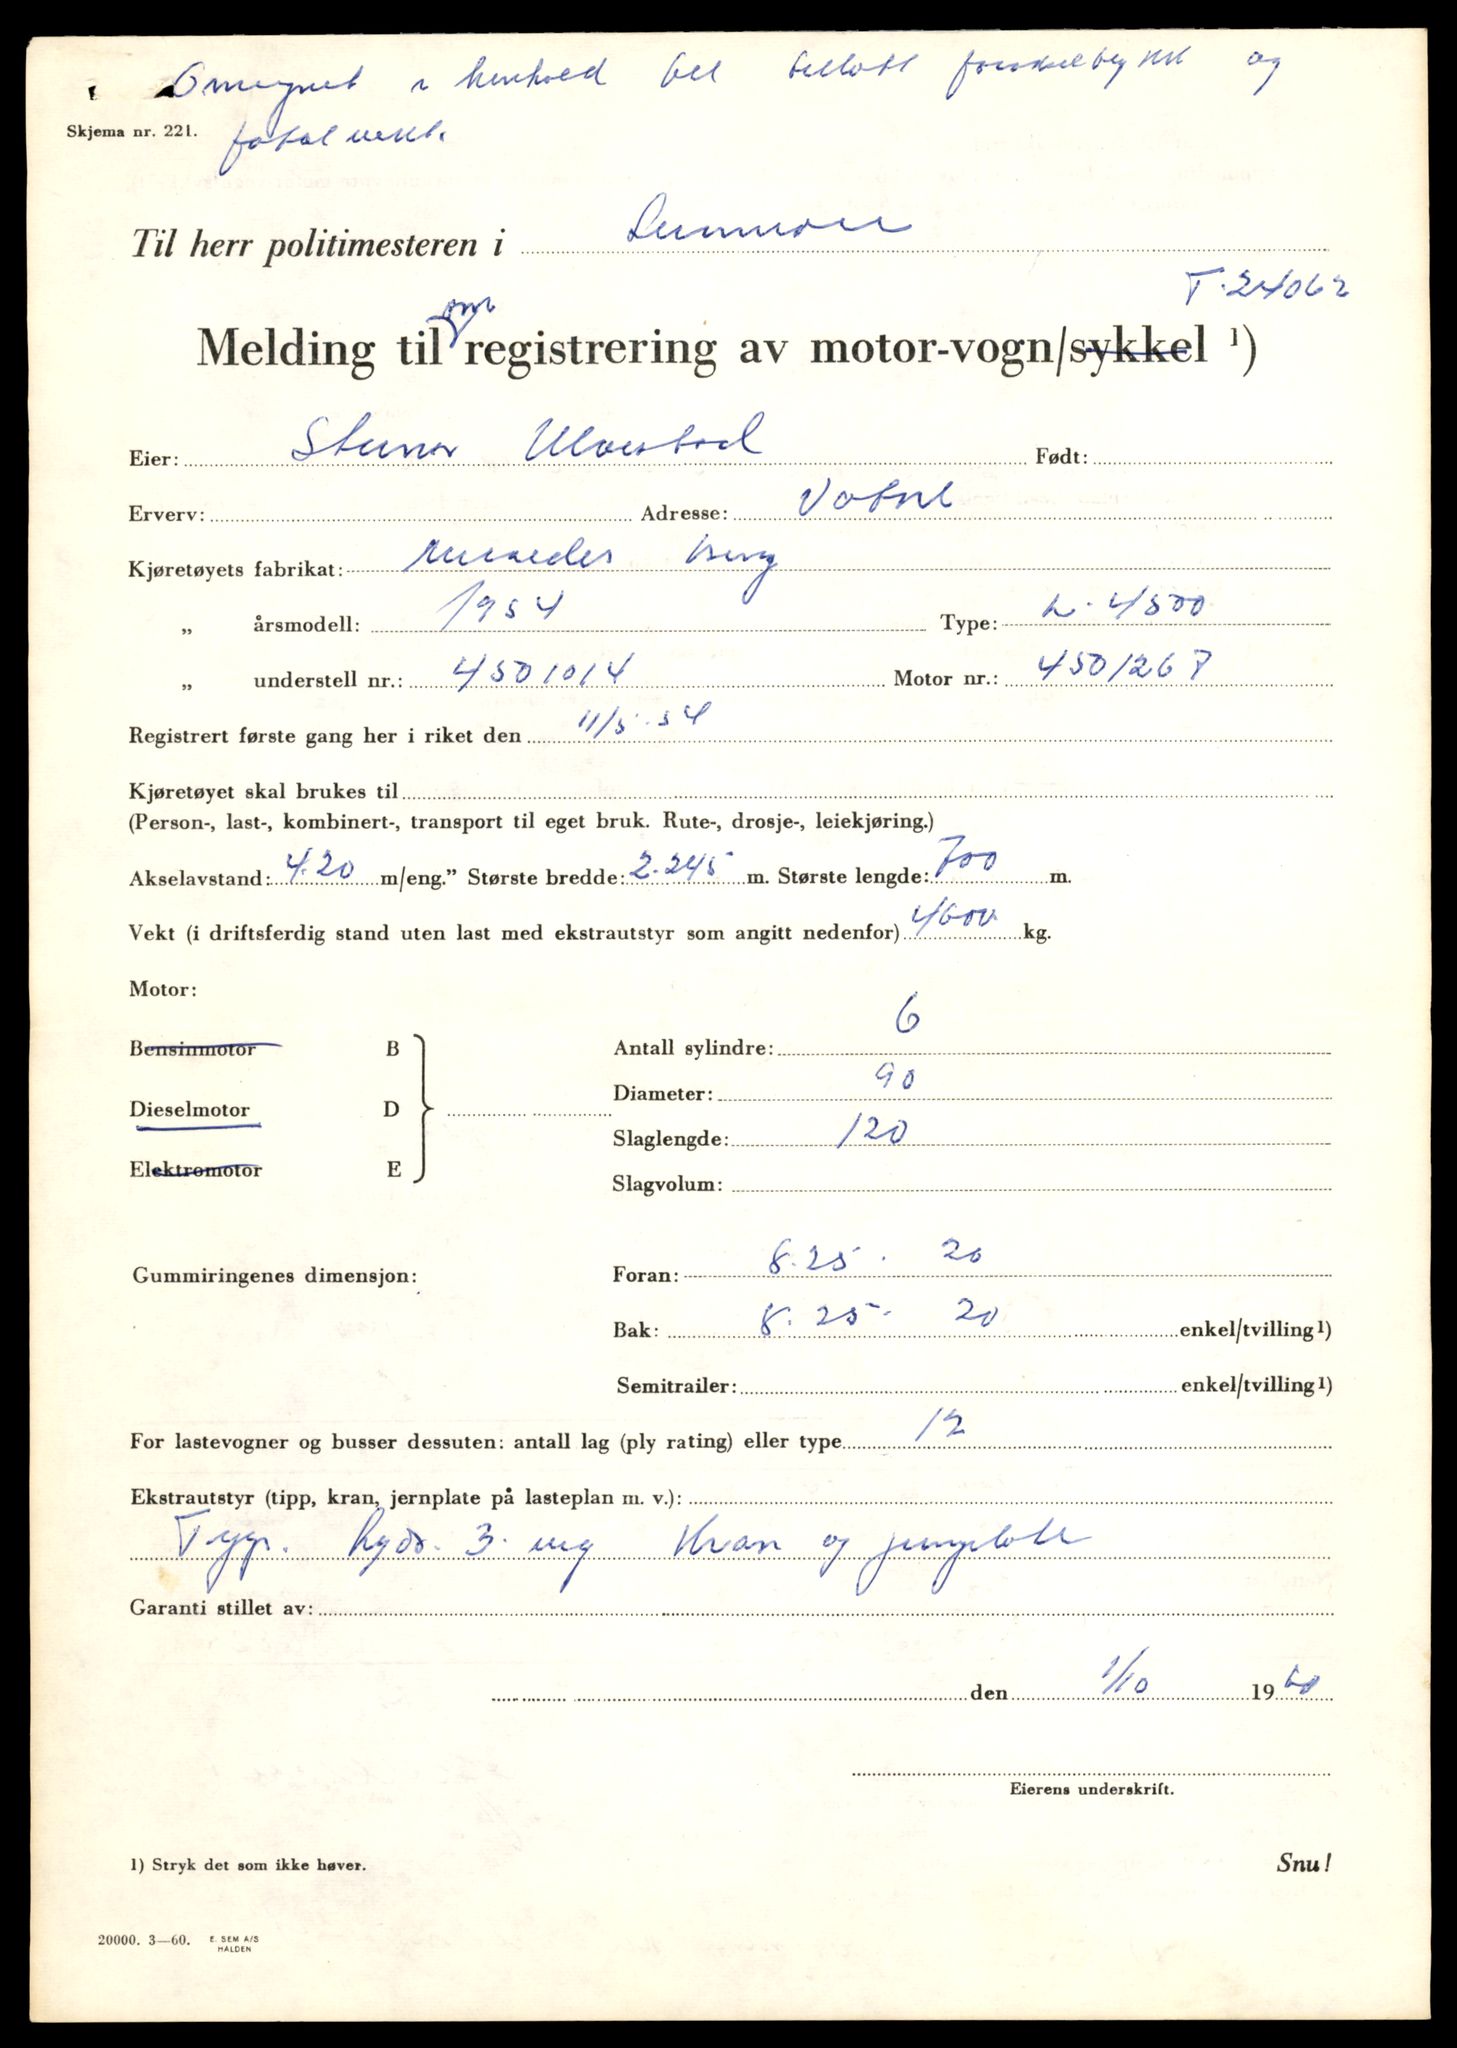 Omregnet i henhold til tillatt og
Skjema nr. 221.
totalvekt.
Til herr politimesteren i Sunnmøre
T-24062
om
Melding til registrering av motor-vogn/sykkel 1)
Eier: Steinar Ulvestad Født:
Erverv: Adresse: Vatne
Kjøretøyets fabrikat: Mercedes Benz
„ årsmodell: 1954 Type: L-4500
„ understell nr.: 4501014 Motor nr.: 4501267
Registrert første gang her i riket den 11/5-54
Kjøretøyet skal brukes til
(Person-, last-, kombinert-, transport til eget bruk. Rute-, drosje-, leiekjøring.)
Akselavstand: 4.20 m/eng.” Største bredde: 2.245 m. Største lengde: 700 m.
Vekt (i driftsferdig stand uten last med ekstrautstyr som angitt nedenfor) 4600 kg.
Motor:
Bensinmotor B
Dieselmotor D
Elektromotor E
Antall sylindre: 6
Diameter: 90
Slaglengde: 120
Slagvolum:
Gummiringenes dimensjon: Foran: 8.25 - 20
Bak: 8.25 - 20 enkel/tvilling 1)
Semitrailer: enkel/tvilling 1)
For lastevogner og busser dessuten: antall lag (ply rating) eller type 12
Ekstrautstyr (tipp, kran, jernplate på lasteplan m. v.):
Typ. hydr. 3. veg Kran og
Garanti stillet av:
den 1/10 1960
Eierens underskrift.
1) Stryk det som ikke høver.
Snu!
20000. 3—60. E. SEM A/S
HALDEN